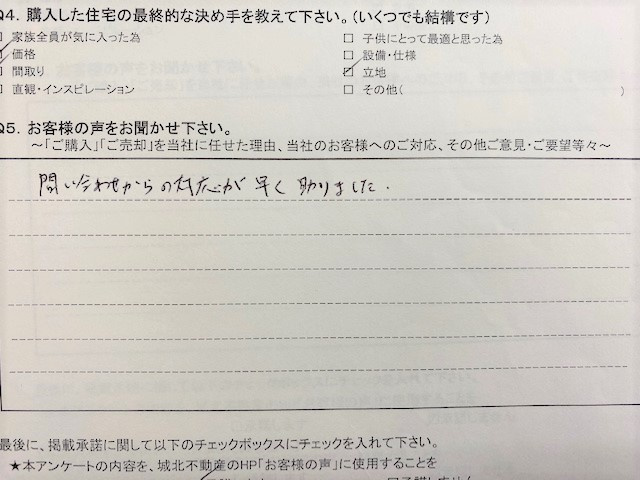 Q4. 購入した住宅の最終的な決め手を教えて下さい。(いくつでも結構です)
家族全員が気に入った為 □ 子供にとって最適と思った為
価格 □ 設備・仕様
間取り ☑ 立地
直観・インスピレーション □ その他( )
Q5. お客様の声をお聞かせ下さい。
～「ご購入」「ご売却」を当社に任せた理由、当社のお客様へのご対応、その他ご意見・ご要望等々～
問い合わせからの対応が早く助りました.
最後に、掲載承諾に関して以下のチェックボックスにチェックを入れて下さい。
★本アンケートの内容を、城北不動産のHP「お客様の声」に使用することを